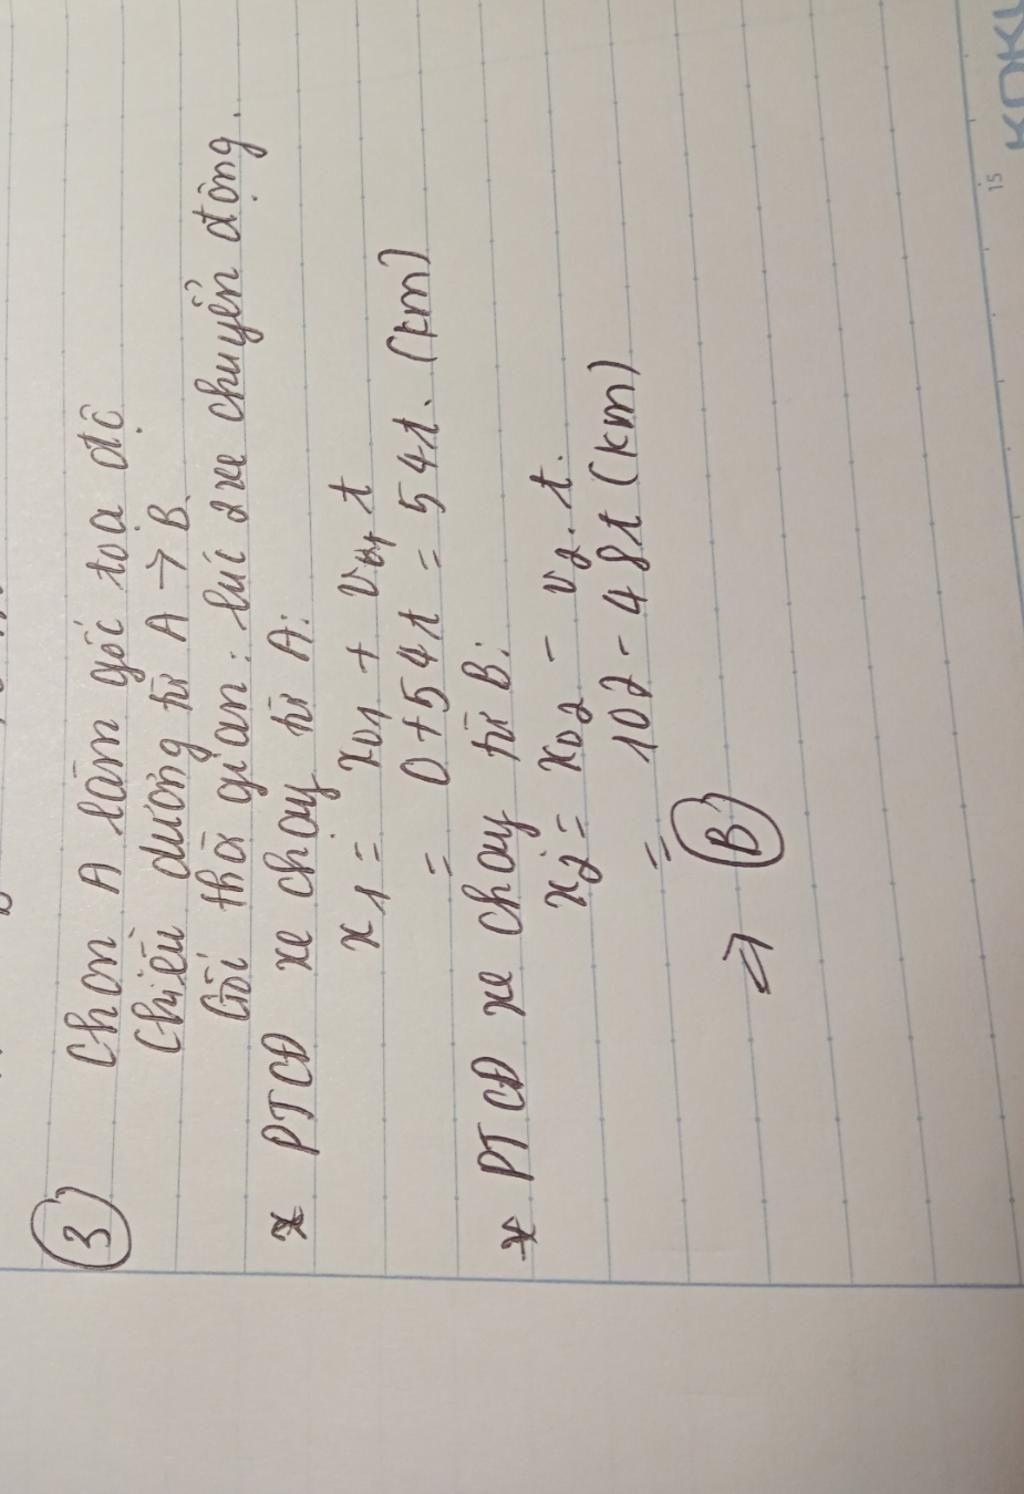 ③ Chọn A làm gốc toạ độ
Chiều dương từ A → B.
Gốc thời gian: lúc 2 xe chuyển động.
* PTCĐ xe chạy từ A:
x₁ = x₀₁ + v₁ t
= 0 + 54t = 54t. (km)
* PTCĐ xe chạy từ B:
x₂ = x₀₂ - v₂ . t.
= 102 - 48t (km)
⇒ Ⓑ
15